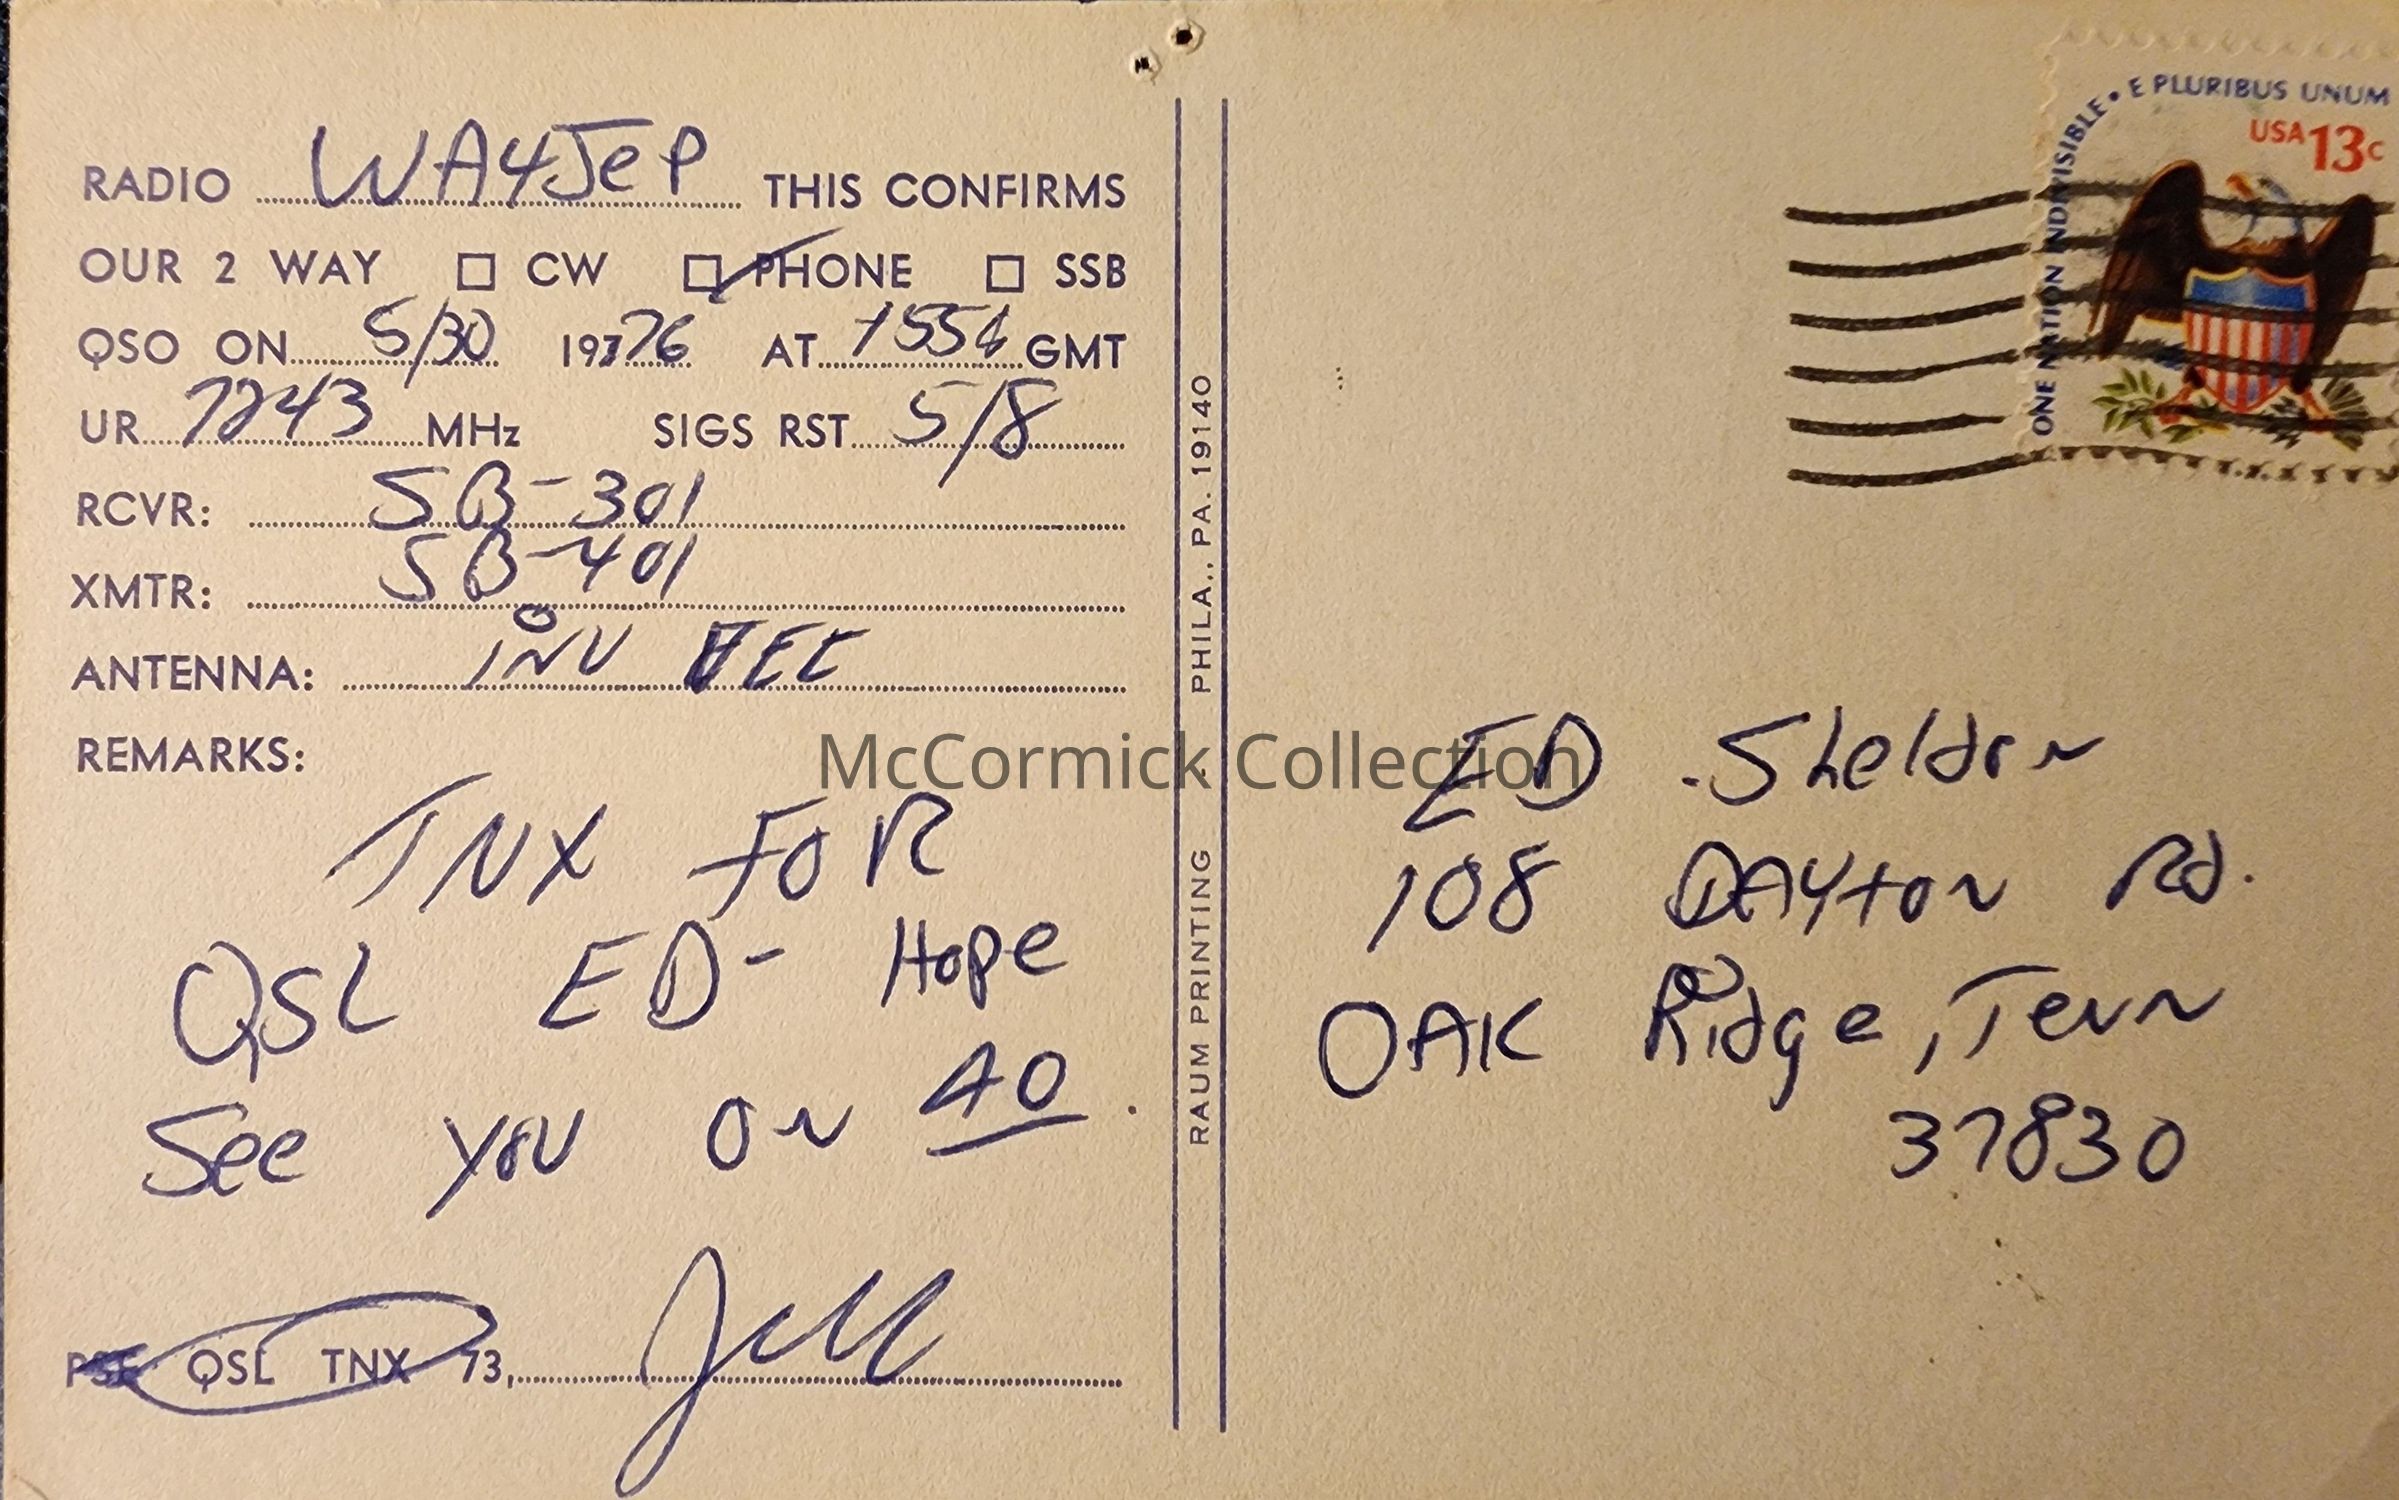 RADIO WA4JEP THIS CONFIRMS
OUR 2 WAY ☐ CW ☑ PHONE ☐ SSB
QSO ON 5/30 1976 AT GMT
UR 7243 MHz SIGS RST 5/8
RCVR: SB-301
XMTR: SB-401
ANTENNA: INV VEE
REMARKS:
TNX FOR
QSL ED- Hope
See you on 40.
PSE QSL TNX 73,
RAUM PRINTING - PHILA., PA. 19140
ONE NATION INDIVISIBLE • E PLURIBUS UNUM
USA 13c
ED Sheldon
108 DAYton Rd.
OAK Ridge, Tenn
37830
McCormick Collection